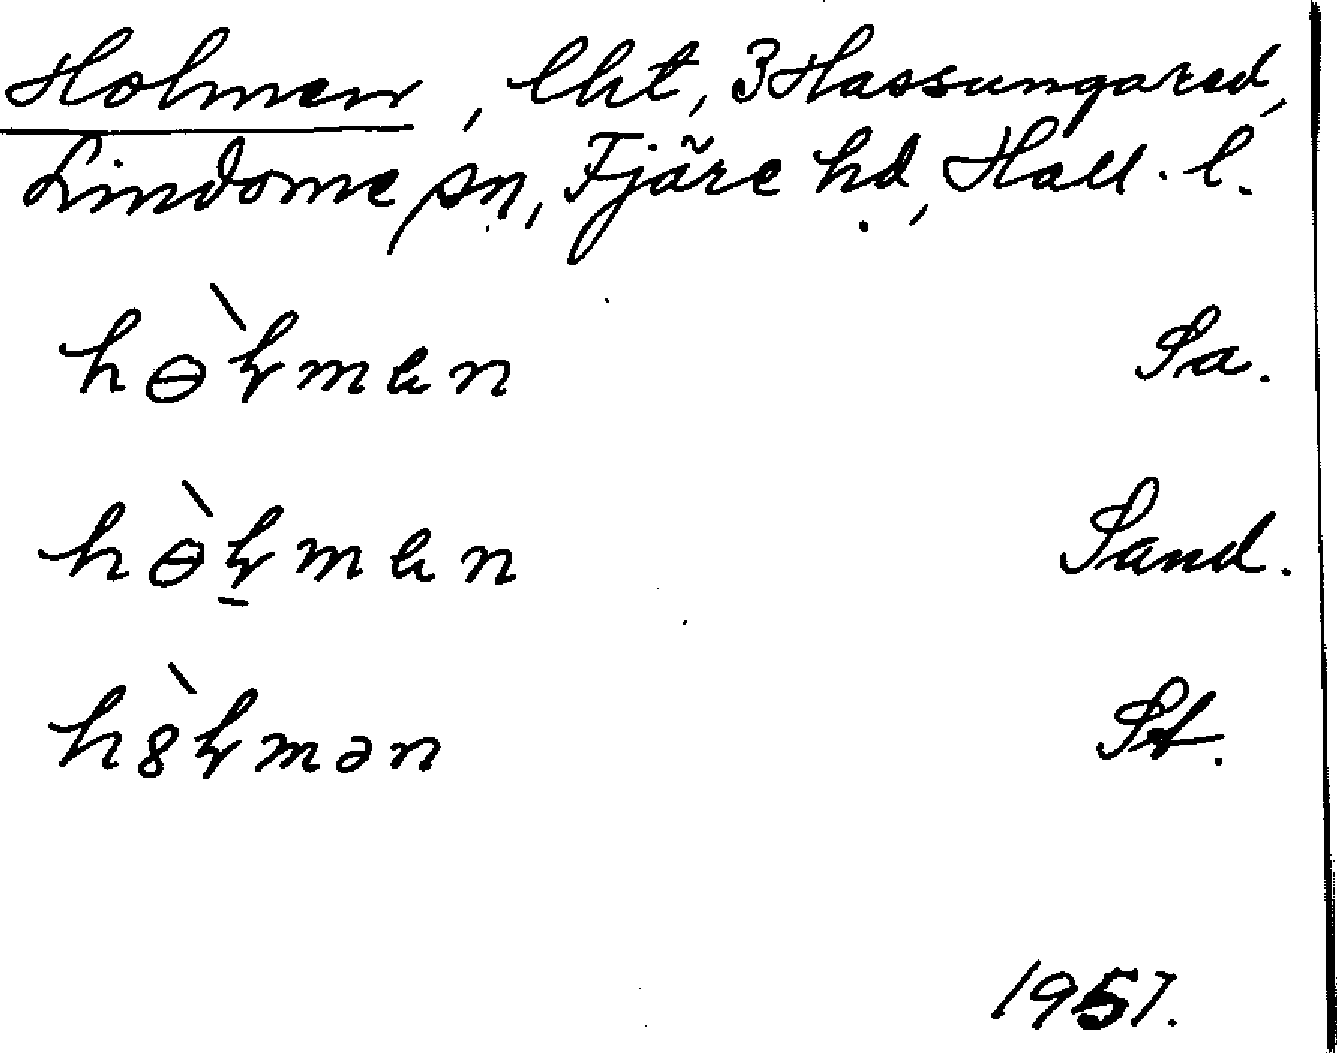 Holmen, lht, 3 Hassungared,
Lindome sn, Fjäre hd, Hall. l.
hɵ̀ɫmen Sa.
hɵ̀ɫ̱men Sand.
h8̀ɫmən St.
1957.